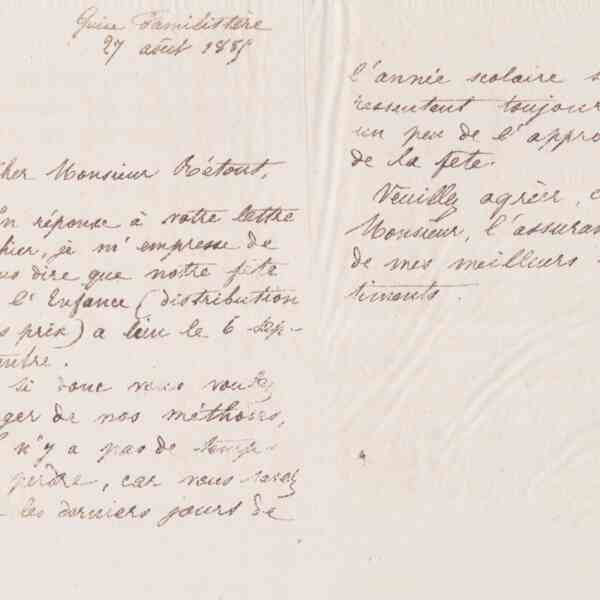 Guise Familistère
27 août 1885
cher Monsieur Rétout,
En réponse à votre lettre
hier, je m'empresse de
vous dire que notre fête
l'Enfance (distribution
s prix) a lieu le 6 sep-
embre.
Si donc vous voulez
ger de nos méthodes,
il n'y a pas de temps
perdre, car vous savez
les derniers jours de
l'année scolaire s
ressentent toujours
un peu de l'appro
de la fête.
Veuillez agréer, c
Monsieur, l'assuran
de mes meilleurs
timents.